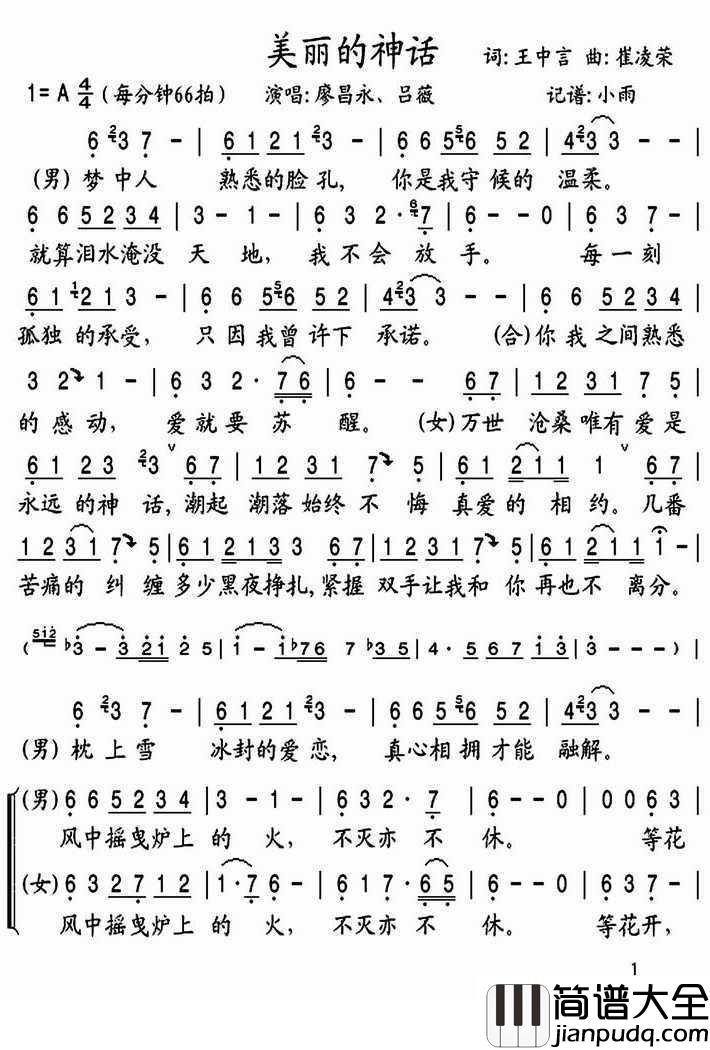 美丽的神话 词:王中言 曲:崔凌荣
1=A 4/4 (每分钟66拍) 演唱:廖昌永、吕薇 记谱:小雨
6 23 7 - | 6 1 2 1 23 | 6 6 56 5 2 | 4 23 3 - |
(男)梦中人 熟悉的脸孔, 你是我守候的 温柔。
6 6 5 2 3 4 | 3 - 1 - | 6 3 2 · 67 | 6 - - 0 | 6 3 7 - |
就算泪水淹没 天 地, 我 不 会 放 手。 每 一 刻
6 1 12 1 3 | 6 6 56 5 2 | 4 23 3 - | 6 6 56 5 2 |
孤独 的承受, 只 因 我曾 许下 承诺。 (合)你 我 之间熟悉
3 2 1 - | 6 3 2 · 7 6 | 6 - - 6 7 | 1 2 3 1 7 5 |
的 感 动, 爱 就 要 苏 醒。 (女)万世 沧桑唯有 爱是
6 1 2 3 23 ∨ 6 7 | 1 2 3 1 7 5 | 6 1 2 1 1 1 ∨ 6 7 |
永远 的神 话,潮起 潮落始终 不 悔 真爱 的 相 约。几番
1 2 3 1 7 5 | 6 1 2 1 3 3 6 7 | 1 2 3 1 7 5 | 6 1 2 1 1 1 - |
苦痛 的 纠 缠 多少黑夜挣扎,紧握 双手让我和 你 再也不 离分。
( 512 b3 - 3 2 1 2 5 | 1 - 1 b7 7 6 7 b3 5 | 4 · 5 6 7 1 3 | 3 - - - ) |
6 23 7 - | 6 1 2 1 23 | 6 6 56 5 2 | 4 23 3 - |
(男)枕 上 雪 冰封的爱 恋, 真心相 拥才能 融解。
(男) 6 6 5 2 3 4 | 3 - 1 - | 6 3 2 · 7 | 6 - - 0 | 0 0 6 3 |
风中摇曳炉上 的 火, 不灭亦 不 休。 等花
(女) 6 3 2 7 1 2 | 1 · 7 6 - | 6 1 7 · 6 5 | 6 - - 0 | 6 3 7 - |
风中摇曳炉上 的 火, 不灭亦 不 休。 等花开,
1
简谱大全
jianpudq.com